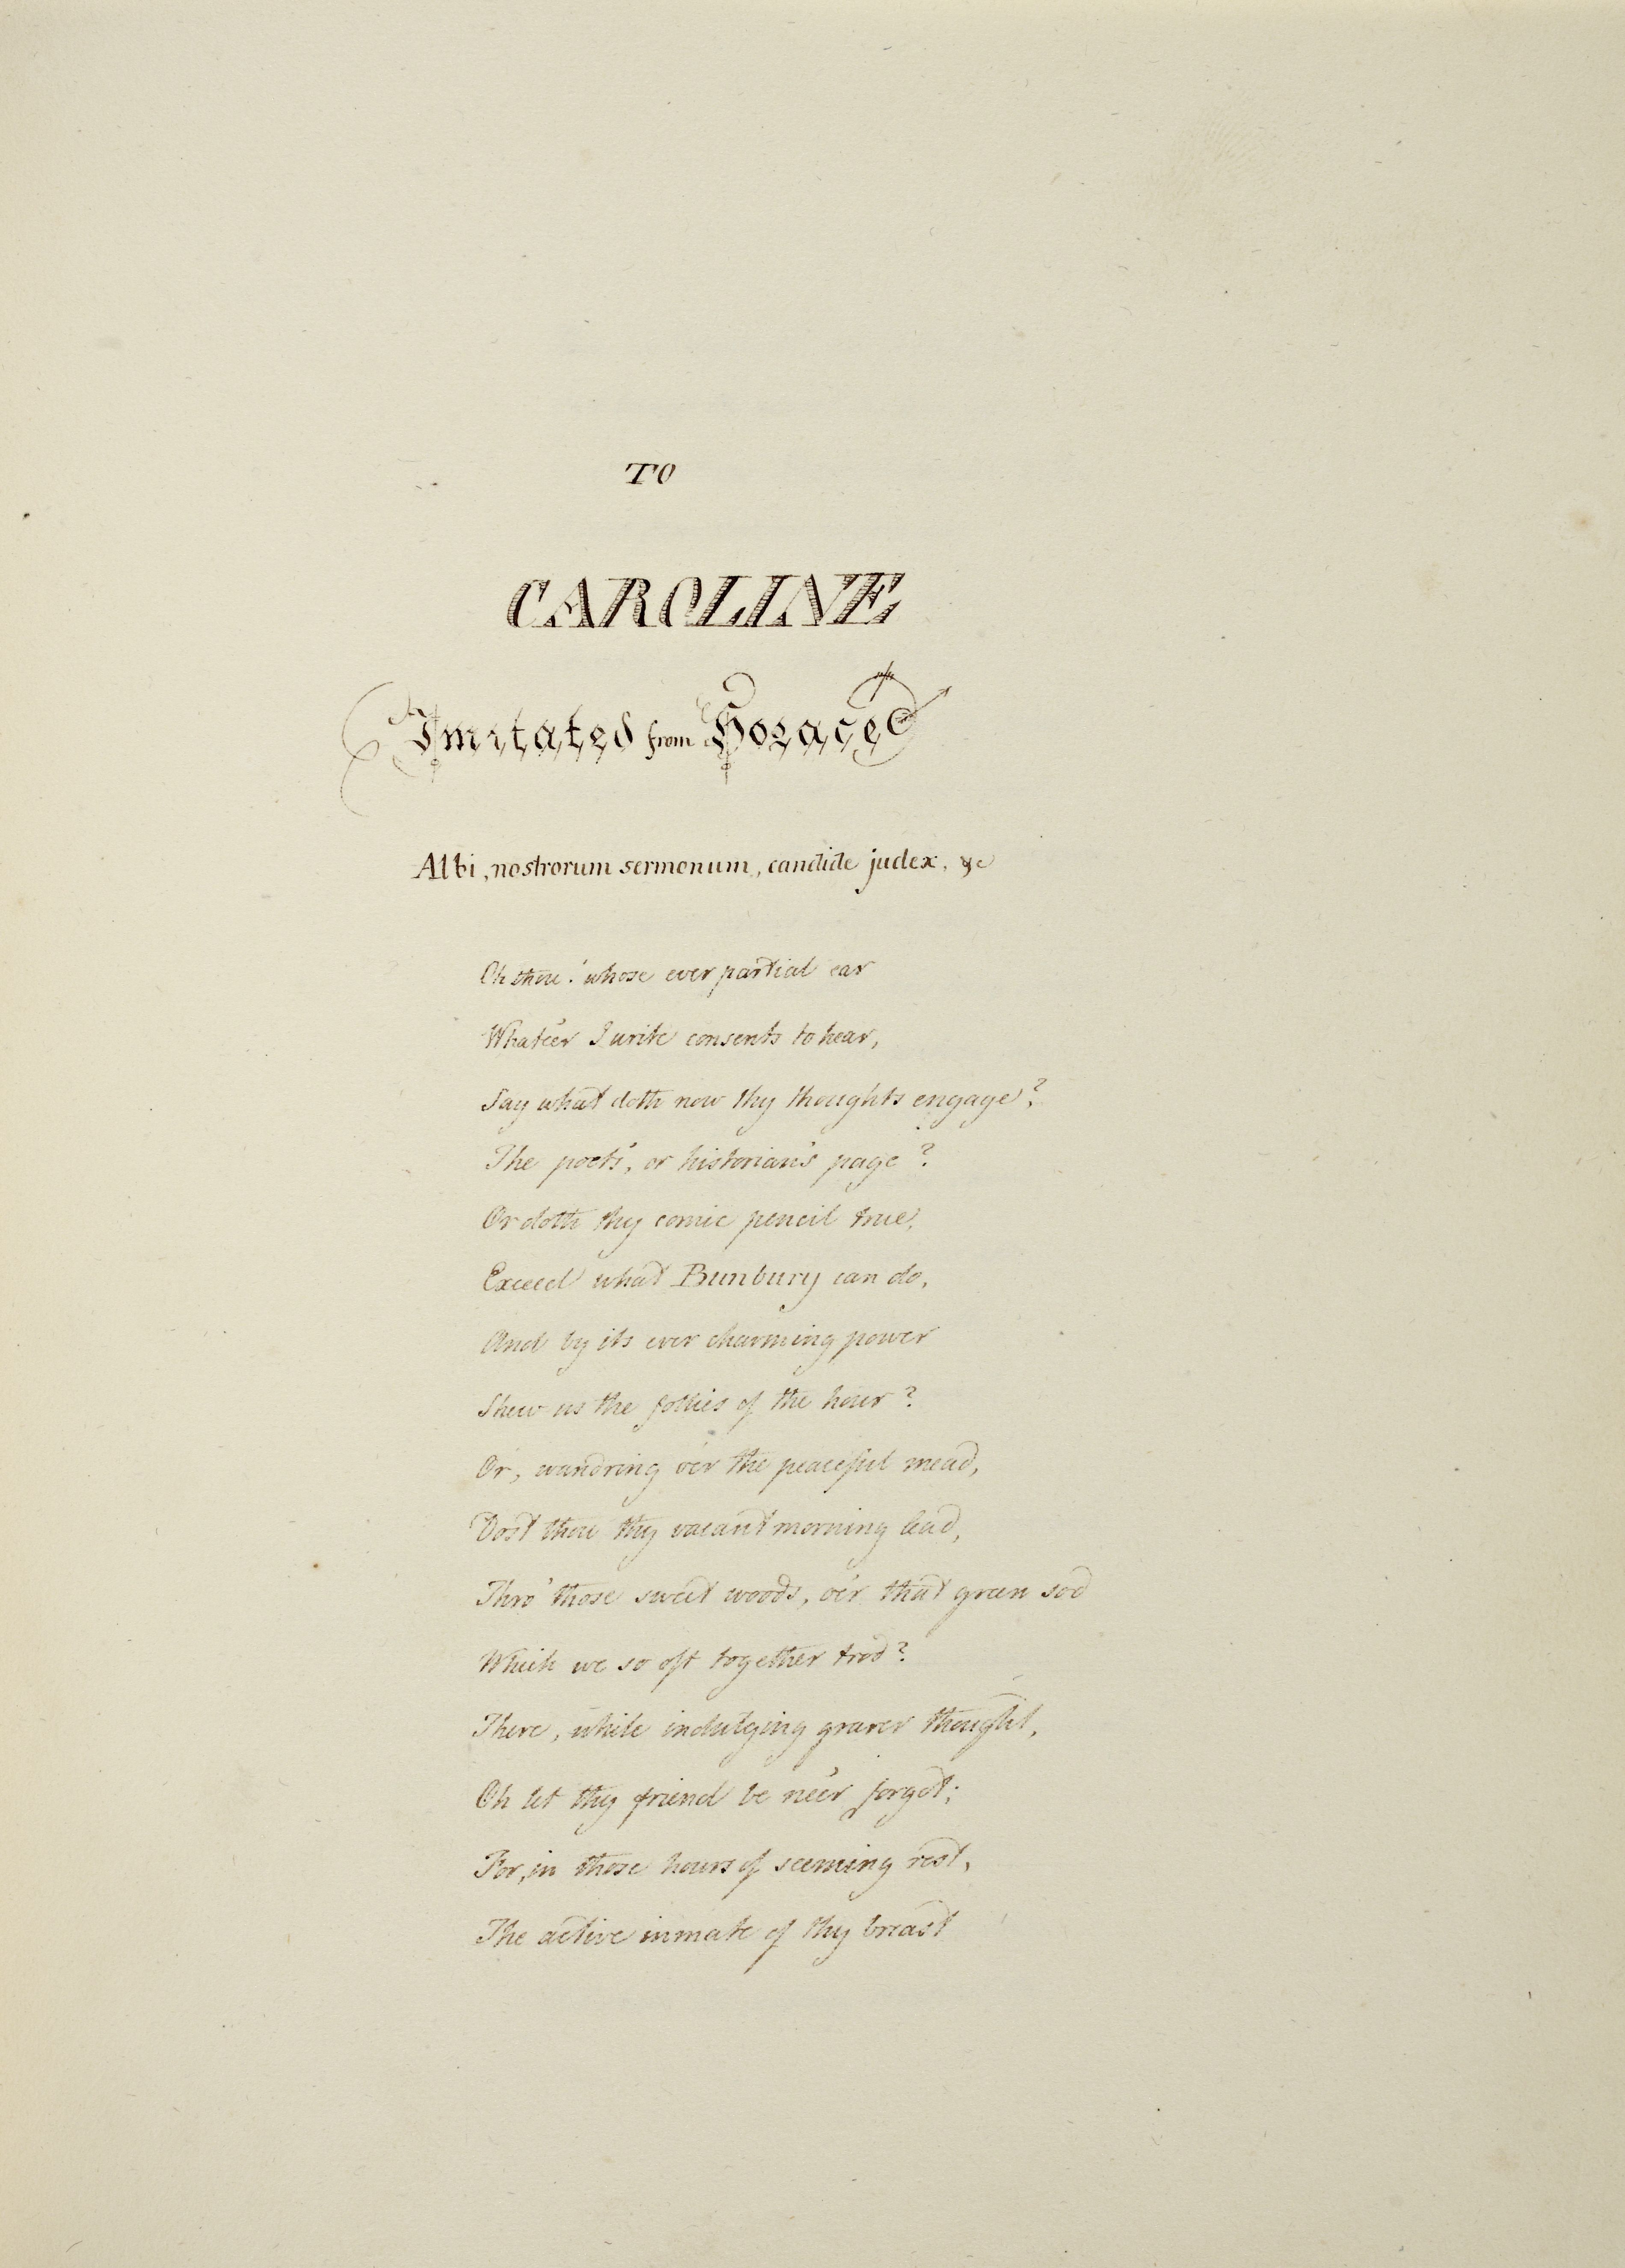 TO
CAROLINE
Imitated from Horace
Albi, nostrorum sermonum, candide judex, &c
Oh thou! whose ever partial ear
Whate'er I write consents to hear,
Say what doth now thy thoughts engage?
The poet's, or historian's page?
Or doth thy comic pencil true,
Exceed what Bunbury can do,
And by its ever charming power
Shew us the follies of the hour?
Or, wand'ring o'er the peaceful mead,
Dost thou thy vacant morning lead,
Thro' those sweet woods, o'er that green sod
Which we so oft together trod?
There, while indulging graver thought,
Oh let thy friend be ne'er forgot;
For, in those hours of seeming rest,
The active inmate of thy breast